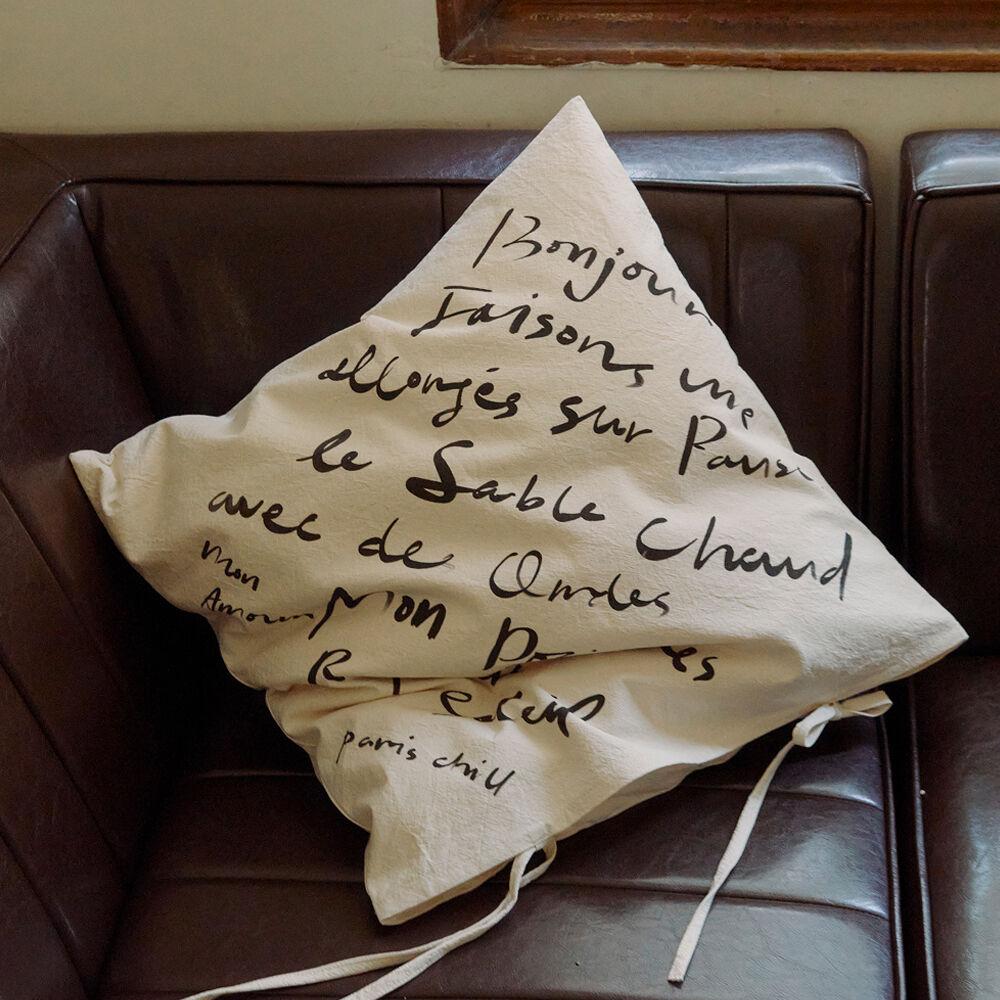 Bonjour
Faisons une
allongés sur Pause
le Sable Chaud
avec de Ondes
mon
Amour
Mon
paris chill